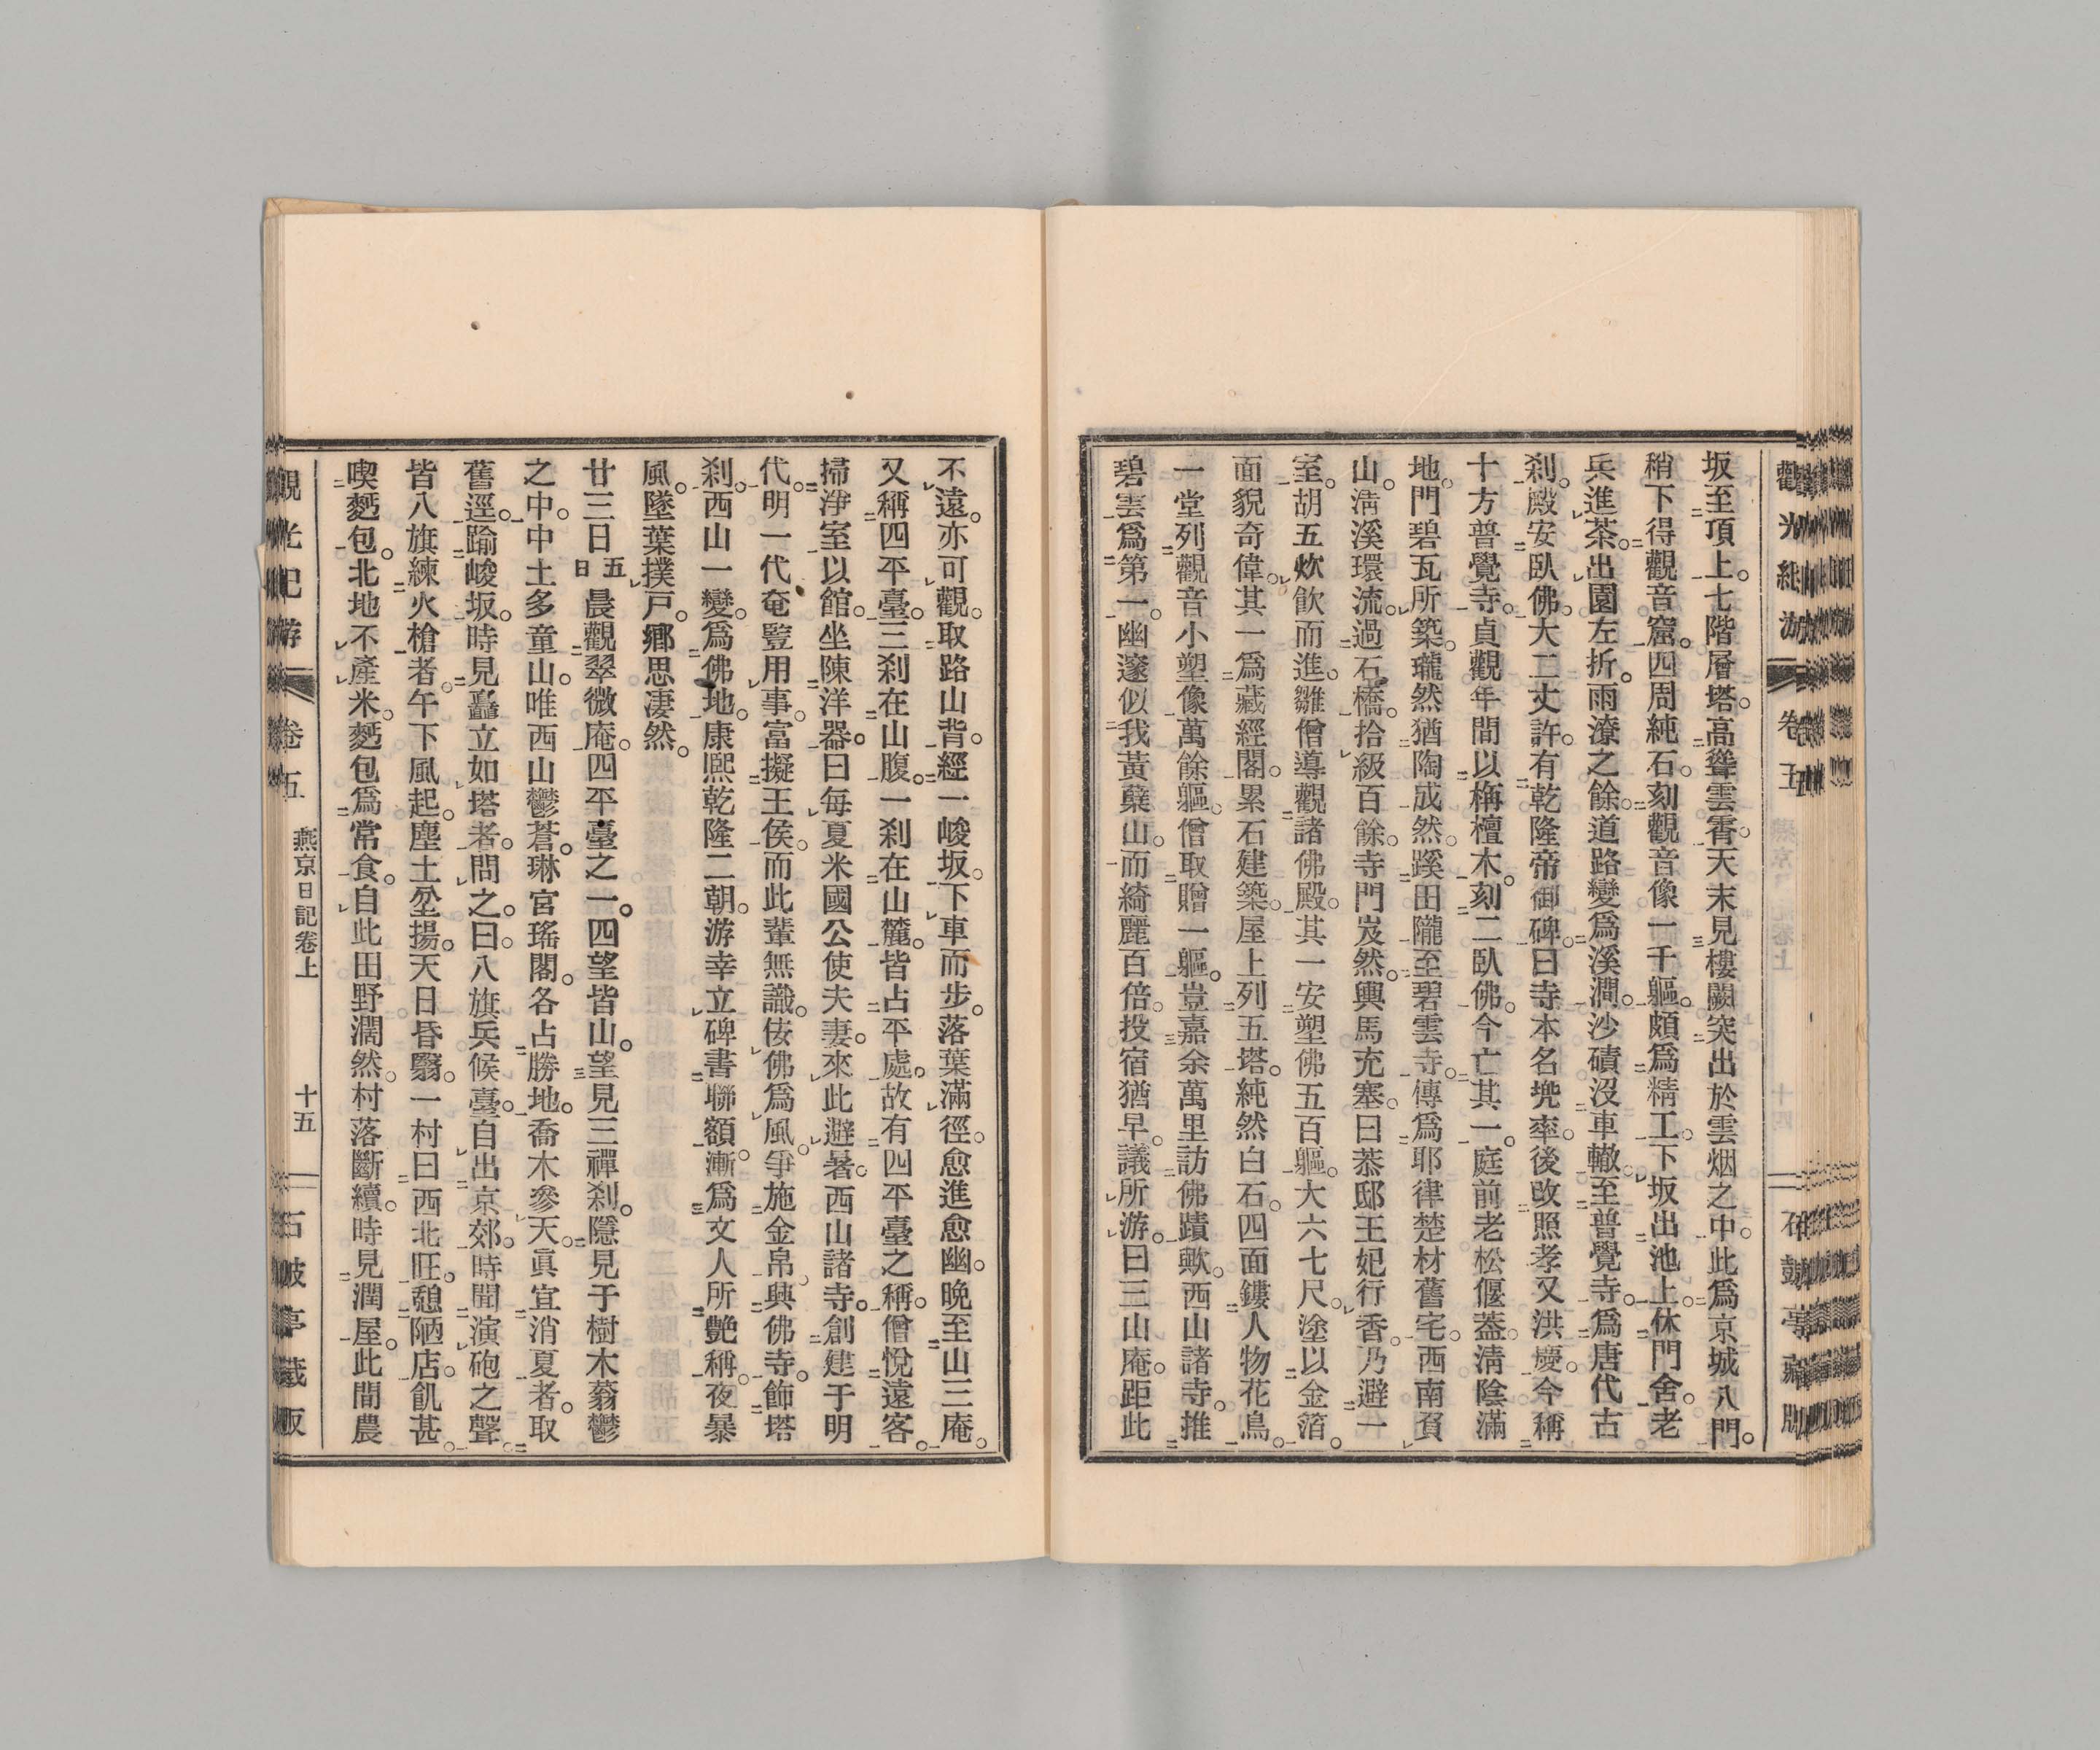 坂至頂上。七階層塔。高聳雲霄。天末見樓闕突出於雲烟之中。此爲京城八門。
稍下得觀音窟。四周純石。刻觀音像一千軀。頗爲精工。下坂出池上。休門舍。老
兵進茶。出園左折。雨潦之餘。道路變爲溪澗。沙磧沒車轍。至普覺寺。爲唐代古
刹。殿安臥佛。大二丈許。有乾隆帝御碑。曰寺本名兠率。後改照孝。又洪慶。今稱
十方普覺寺。貞觀年間以栴檀木。刻二臥佛。今亡其一。庭前老松偃葢。淸陰滿
地。門碧瓦所築。瓏然猶陶成然。蹊田隴至碧雲寺。傳爲耶律楚材舊宅。西南負
山。淸溪環流。過石橋。拾級百餘。寺門岌然。輿馬充塞。曰恭邸王妃行香。乃避一
室。胡五炊飲而進。雛僧導觀諸佛殿。其一安塑佛五百軀。大六七尺。塗以金箔。
面貌奇偉。其一爲藏經閣。累石建築。屋上列五塔。純然白石。四面鏤人物花鳥。
一堂列觀音小塑像萬餘軀。僧取贈一軀。豈嘉余萬里訪佛蹟歟。西山諸寺。推
碧雲爲第一。幽邃似我黃蘗山。而綺麗百倍。投宿猶早。議所游。曰三山庵。距此
不遠。亦可觀。取路山背。經一峻坂。下車而步。落葉滿徑。愈進愈幽。晩至山三庵。
又稱四平臺。三刹在山腹。一刹在山麓。皆占平處。故有四平臺之稱。僧悅遠客。
掃淨室以館。坐陳洋器。曰每夏米國公使夫妻。來此避暑。西山諸寺。創建于明
代。明一代奄豎用事。富擬王侯。而此輩無識。侫佛爲風。爭施金帛。興佛寺。飾塔
刹。西山一變。爲佛地。康熙乾隆二朝。游幸立碑書聯額。漸爲文人所艷稱。夜暴
風。墜葉撲戸。鄕思凄然。
廿三日五日晨觀翠微庵。四平臺之一。四望皆山。望見三禪刹。隱見于樹木蓊鬱
之中。中土多童山。唯西山鬱蒼。琳宮瑤閣。各占勝地。喬木參天。眞宜消夏者。取
舊逕。踰峻坂。時見矗立如塔者。問之。曰。八旗兵候臺。自出京郊。時聞演砲之聲。
皆八旗練火槍者。午下風起。塵土坌揚。天日昏翳。一村曰西北旺。憩陋店。飢甚。
喫麪包。北地不產米。麪包爲常食。自此田野濶然。村落斷續。時見潤屋。此間農
卷五
燕京日記卷上
十五